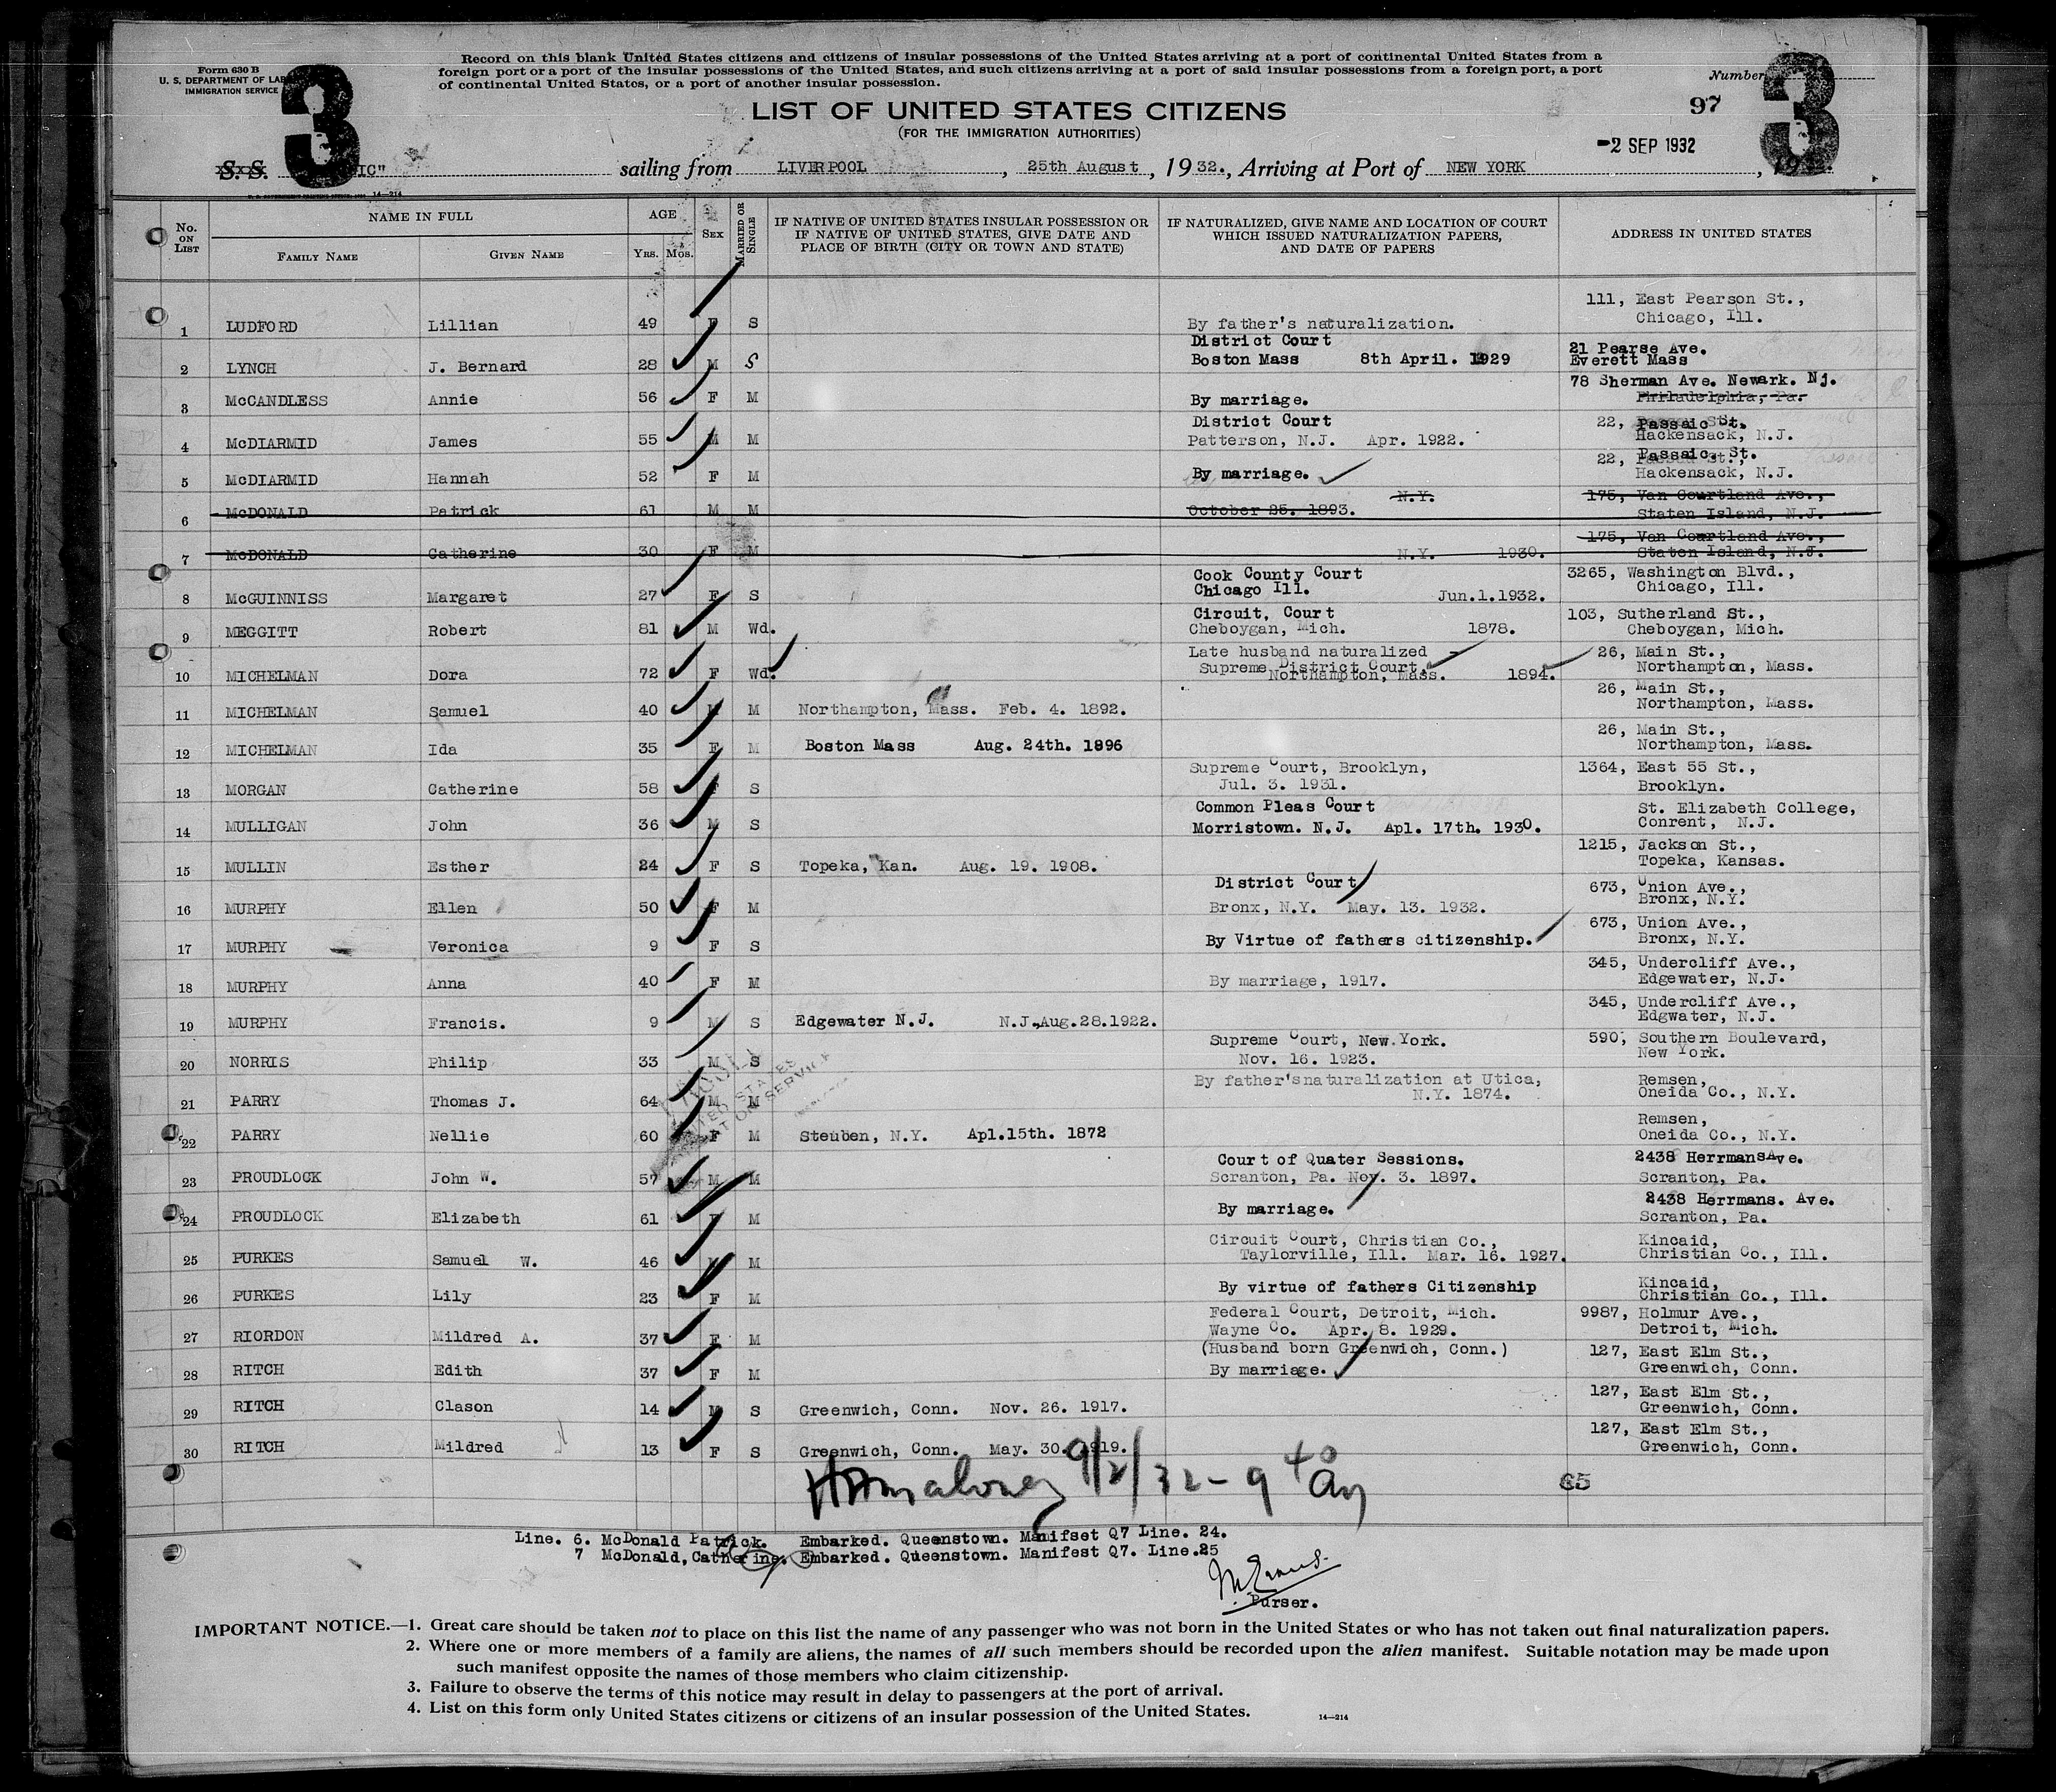 Form 630 B
U. S. DEPARTMENT OF LA
IMMIGRATION SERVICE
3
Record on this blank United States citizens and citizens of insular possessions of the United States arriving at a port of continental United States from a
foreign port or a port of the insular possessions of the United States, and such citizens arriving at a port of said insular possessions from a foreign port, a port
of continental United States, or a port of another insular possession.
Number
3
97
LIST OF UNITED STATES CITIZENS
(FOR THE IMMIGRATION AUTHORITIES)
-2 SEP 1932
S. S. IC" sailing from LIVERPOOL, 25th August, 1932., Arriving at Port of NEW YORK, 19
14-214
No. ON LIST
NAME IN FULL
FAMILY NAME
GIVEN NAME
AGE
YRS.
MOS.
SEX
MARRIED OR SINGLE
IF NATIVE OF UNITED STATES INSULAR POSSESSION OR
IF NATIVE OF UNITED STATES, GIVE DATE AND
PLACE OF BIRTH (CITY OR TOWN AND STATE)
IF NATURALIZED, GIVE NAME AND LOCATION OF COURT
WHICH ISSUED NATURALIZATION PAPERS,
AND DATE OF PAPERS
ADDRESS IN UNITED STATES
1 LUDFORD Lillian 49 F S By father's naturalization. 111, East Pearson St.,
Chicago, Ill.
District Court
2 LYNCH J. Bernard 28 M S Boston Mass 8th April. 1929 21 Pearse Ave.
Everett Mass
3 McCANDLESS Annie 56 F M By marriage. 78 Sherman Ave. Newark. Nj.
Philadelphia, Pa.
District Court
4 McDIARMID James 55 M M Patterson, N.J. Apr. 1922. 22, Passaic St.
Hackensack, N.J.
5 McDIARMID Hannah 52 F M By marriage. 22, Passaic. St.
Hackensack, N.J.
N.Y.
6 McDONALD Patrick 61 M M October 25. 1893. 175, Van Courtland Ave.,
Staten Island, N.J.
7 McDONALD Catherine 30 F M N.Y. 1930. 175, Van Courtland Ave.,
Staten Island, N.J.
Cook County Court
8 McGUINNISS Margaret 27 F S Chicago Ill. Jun.1.1932. 3265, Washington Blvd.,
Chicago, Ill.
Circuit, Court
9 MEGGITT Robert 81 M Wd. Cheboygan, Mich. 1878. 103, Sutherland St.,
Cheboygan, Mich.
Late husband naturalized
Supreme District Court,
10 MICHELMAN Dora 72 F Wd. Northampton, Mass. 1894. 26, Main St.,
Northampton, Mass.
11 MICHELMAN Samuel 40 M M Northampton, Mass. Feb. 4. 1892. 26, Main St.,
Northampton, Mass.
12 MICHELMAN Ida 35 F M Boston Mass Aug. 24th. 1896 26, Main St.,
Northampton, Mass.
Supreme Court, Brooklyn,
13 MORGAN Catherine 58 F S Jul. 3. 1931. 1364, East 55 St.,
Brooklyn.
Common Pleas Court
14 MULLIGAN John 36 M S Morristown. N.J. Apl. 17th. 1930. St. Elizabeth College,
Conrent, N.J.
15 MULLIN Esther 24 F S Topeka, Kan. Aug. 19. 1908. 1215, Jackson St.,
Topeka, Kansas.
District Court
16 MURPHY Ellen 50 F M Bronx, N.Y. May. 13. 1932. 673, Union Ave.,
Bronx, N.Y.
17 MURPHY Veronica 9 F S By Virtue of fathers citizenship. 673, Union Ave.,
Bronx, N.Y.
18 MURPHY Anna 40 F M By marriage, 1917. 345, Undercliff Ave.,
Edgewater, N.J.
19 MURPHY Francis. 9 M S Edgewater N.J. N.J.,Aug.28.1922. 345, Undercliff Ave.,
Edgwater, N.J.
Supreme Court, New York.
20 NORRIS Philip 33 M S Nov. 16. 1923. 590, Southern Boulevard,
New York.
By father'snaturalization at Utica,
21 PARRY Thomas J. 64 M M N.Y. 1874. Remsen,
Oneida Co., N.Y.
22 PARRY Nellie 60 F M Steuben, N.Y. Apl.15th. 1872 Remsen,
Oneida Co., N.Y.
Court of Quater Sessions.
23 PROUDLOCK John W. 57 M M Scranton, Pa. Nov. 3. 1897. 2438 Herrmans Ave.
Scranton, Pa.
24 PROUDLOCK Elizabeth 61 F M By marriage. 2438 Herrmans. Ave.
Scranton, Pa.
Circuit Court, Christian Co.,
25 PURKES Samuel W. 46 M M Taylorville, Ill. Mar. 16. 1927. Kincaid,
Christian Co., Ill.
26 PURKES Lily 23 F M By virtue of fathers Citizenship Kincaid,
Christian Co., Ill.
Federal Court, Detroit, Mich.
27 RIORDON Mildred A. 37 F M Wayne Co. Apr. 8. 1929. 9987, Holmur Ave.,
Detroit, Mich.
(Husband born Greenwich, Conn.)
28 RITCH Edith 37 F M By marriage. 127, East Elm St.,
Greenwich, Conn.
29 RITCH Clason 14 M S Greenwich, Conn. Nov. 26. 1917. 127, East Elm St.,
Greenwich, Conn.
30 RITCH Mildred 13 F S Greenwich, Conn. May. 30. 1919. 127, East Elm St.,
Greenwich, Conn.
9/2/32 - 9
65
Line. 6. McDonald Patrick. Embarked. Queenstown. Manifset Q7 Line. 24.
7 McDonald, Catherine. Embarked. Queenstown. Manifest Q7. Line.25
Purser.
IMPORTANT NOTICE.—1. Great care should be taken not to place on this list the name of any passenger who was not born in the United States or who has not taken out final naturalization papers.
2. Where one or more members of a family are aliens, the names of all such members should be recorded upon the alien manifest. Suitable notation may be made upon
such manifest opposite the names of those members who claim citizenship.
3. Failure to observe the terms of this notice may result in delay to passengers at the port of arrival.
4. List on this form only United States citizens or citizens of an insular possession of the United States.
14-214